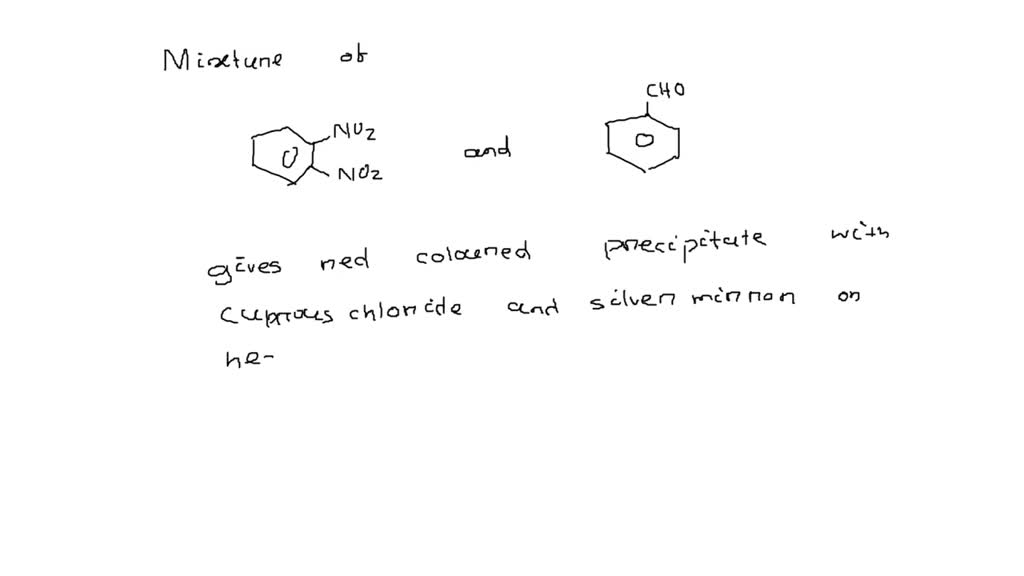 Mixture of
CHO
NO2
and
NO2
gives red coloured precipitate with
cuprous chloride and silver mirror on
he